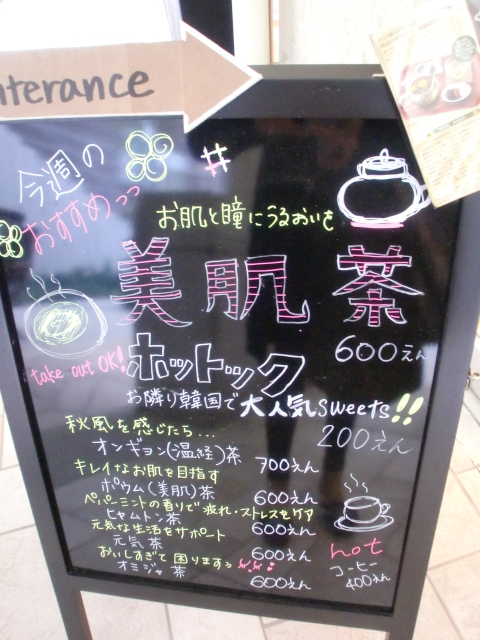 nterance
今週の
おすすめっっ
お肌と瞳にうるおいを
美肌茶
600えん
take out OK!
ホットック
お隣り韓国で大人気sweets!!
200えん
秋風を感じたら…
オンギョン(温経)茶 700えん
キレイなお肌を目指す
ポウム(美肌)茶 600えん
ペパーミントの香りで疲れ・ストレスをケア
ヒャムトン茶 600えん
元気な生活をサポート
元気茶 600えん
おいしすぎて困りますぅ
オミジャ茶 600えん
hot
コーヒー
400えん